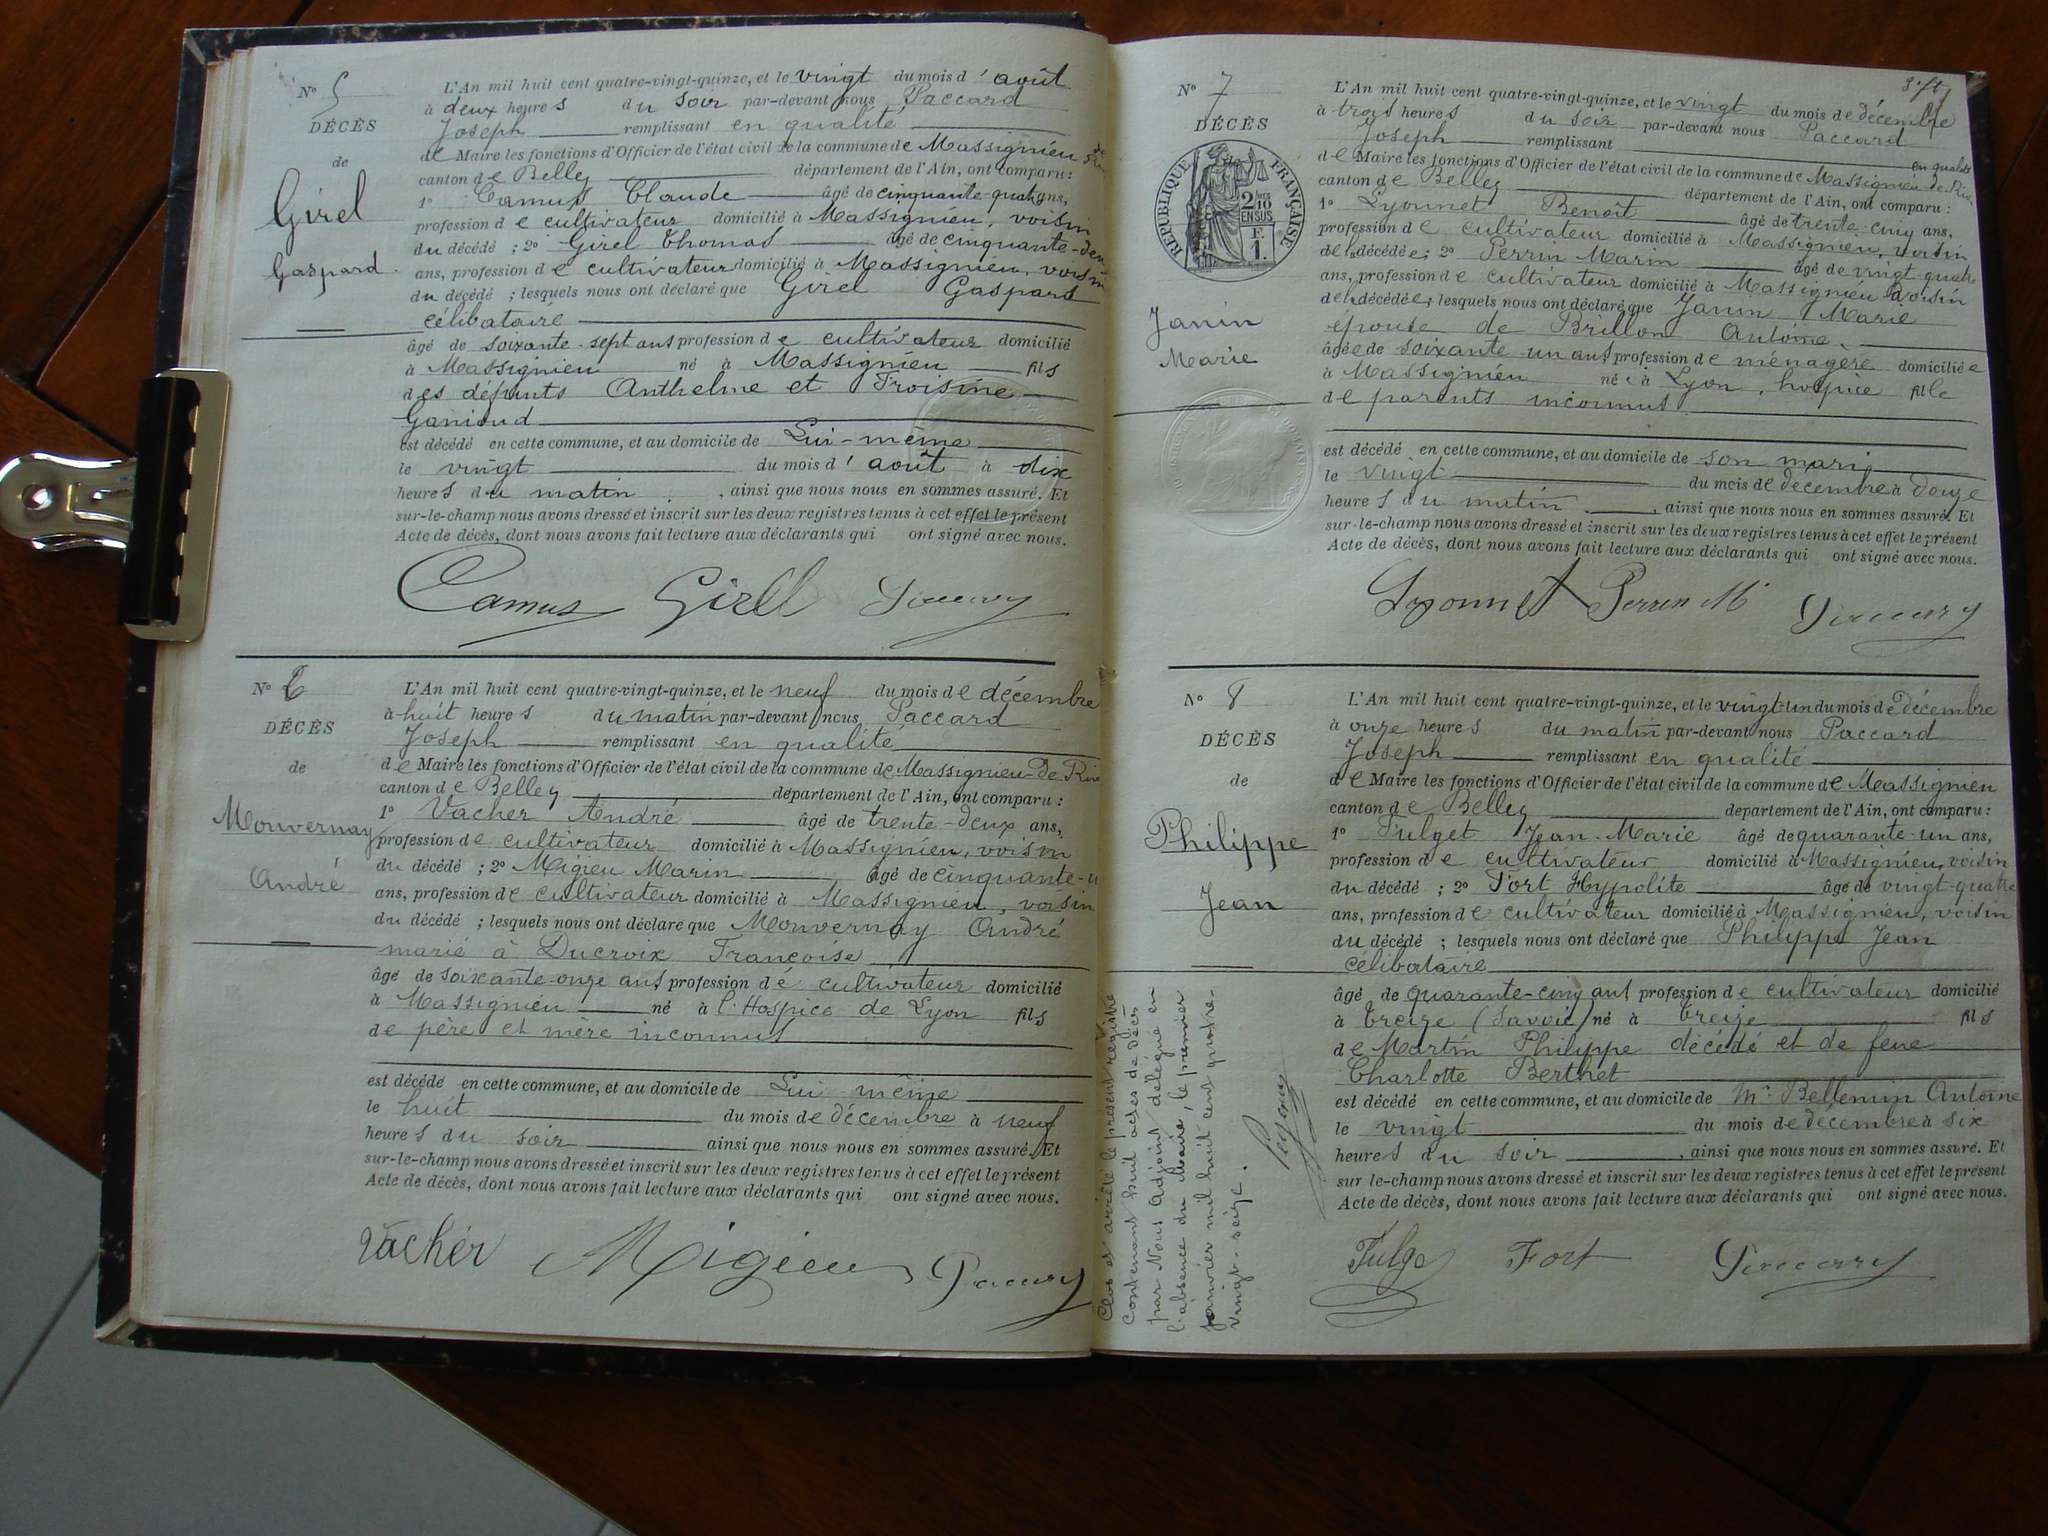 N° 5
DÉCÈS
de
Girel
Gaspard
L'An mil huit cent quatre-vingt-quinze, et le vingt du mois d'août
à deux heures du soir par-devant nous Paccard
Joseph remplissant en qualité
de Maire les fonctions d'Officier de l'état civil de la commune de Massignieu de Rives
canton de Belley département de l'Ain, ont comparu :
1° Camus Claude âgé de cinquante quatre ans,
profession de cultivateur domicilié à Massignieu, voisin
du décédé ; 2° Girel Thomas âgé de cinquante-deux
ans, profession de cultivateur domicilié à Massignieu, voisin
du décédé ; lesquels nous ont déclaré que Girel Gaspard
célibataire
âgé de soixante-sept ans profession de cultivateur domicilié
à Massignieu né à Massignieu fils
des défunts Anthelme et Froisine
Ganioud
est décédé en cette commune, et au domicile de Lui-même
le vingt du mois d'août à dix
heures du matin, ainsi que nous nous en sommes assuré. Et
sur-le-champ nous avons dressé et inscrit sur les deux registres tenus à cet effet le présent
Acte de décès, dont nous avons fait lecture aux déclarants qui ont signé avec nous.
Camus Girel Paccard
N° 6
DÉCÈS
de
Mouvernay
André
L'An mil huit cent quatre-vingt-quinze, et le neuf du mois de décembre
à huit heures du matin par-devant nous Paccard
Joseph remplissant en qualité
de Maire les fonctions d'Officier de l'état civil de la commune de Massignieu-De Rives
canton de Belley département de l'Ain, ont comparu :
1° Vacher André âgé de trente-deux ans,
profession de cultivateur domicilié à Massignieu, voisin
du décédé ; 2° Migieu Marin âgé de cinquante-u
ans, profession de cultivateur domicilié à Massignieu, voisin
du décédé ; lesquels nous ont déclaré que Mouvernay André
marié à Ducroix Françoise
âgé de soixante-onze ans profession de cultivateur domicilié
à Massignieu né à l'Hospice de Lyon fils
de père et mère inconnus
est décédé en cette commune, et au domicile de Lui-même
le huit du mois de décembre à neuf
heures du soir ainsi que nous nous en sommes assuré. Et
sur-le-champ nous avons dressé et inscrit sur les deux registres tenus à cet effet le présent
Acte de décès, dont nous avons fait lecture aux déclarants qui ont signé avec nous.
Vachér Migieu Paccard
N° 7
DÉCÈS
RÉPUBLIQUE FRANÇAISE
2/10 EN SUS
F. 1.
Janin
Marie
L'An mil huit cent quatre-vingt-quinze, et le vingt du mois de décembre
à trois heures du soir par-devant nous Paccard
Joseph remplissant en qualité
de Maire les fonctions d'Officier de l'état civil de la commune de Massignieu de Rives
canton de Belley département de l'Ain, ont comparu :
1° Lyonnet Benoît âgé de trente-cinq ans,
profession de cultivateur domicilié à Massignieu, voisin
de la décédée ; 2° Perrin Marin âgé de vingt-quatre
ans, profession de cultivateur domicilié à Massignieu voisin
de la décédée ; lesquels nous ont déclaré que Janin Marie
épouse de Brillon Antoine.
âgée de soixante un ans profession de ménagère domiciliée
à Massignieu née à Lyon, hospice fille
de parents inconnus
est décédé en cette commune, et au domicile de son mari
le vingt du mois de décembre à douze
heures du matin, ainsi que nous nous en sommes assuré. Et
sur-le-champ nous avons dressé et inscrit sur les deux registres tenus à cet effet le présent
Acte de décès, dont nous avons fait lecture aux déclarants qui ont signé avec nous.
Lyonnet Perrin M Paccard
N° 8
DÉCÈS
de
Philippe
Jean
L'An mil huit cent quatre-vingt-quinze, et le vingt-un du mois de décembre
à onze heures du matin par-devant nous Paccard
Joseph remplissant en qualité
de Maire les fonctions d'Officier de l'état civil de la commune de Massignieu
canton de Belley departement de l'Ain, ont comparu :
1° Fulget Jean-Marie âgé de quarante-un ans,
profession de cultivateur domicilié à Massignieu, voisin
du décédé ; 2° Fort Hypolite âgé de vingt-quatre
ans, profession de cultivateur domicilié à Massignieu, voisin
du décédé ; lesquels nous ont déclaré que Philippe Jean
célibataire
âgé de quarante-cinq ans profession de cultivateur domicilié
à Creize (Savoie) né à Creize fils
de Martin Philippe décédé et de feue
Charlotte Berthet
est décédé en cette commune, et au domicile de Mr Bellemin Antoine
le vingt du mois de décembre à six
heures du soir, ainsi que nous nous en sommes assuré. Et
sur-le-champ nous avons dressé et inscrit sur les deux registres tenus à cet effet le présent
Acte de décès, dont nous avons fait lecture aux déclarants qui ont signé avec nous.
Fulge Fort Paccard
Clos et arrêté le présent registre
contenant huit actes de décès
par Nous Adjoint délégué en
l'absence du Maire, le premier
janvier mil huit cent quatre-
vingt-seize.